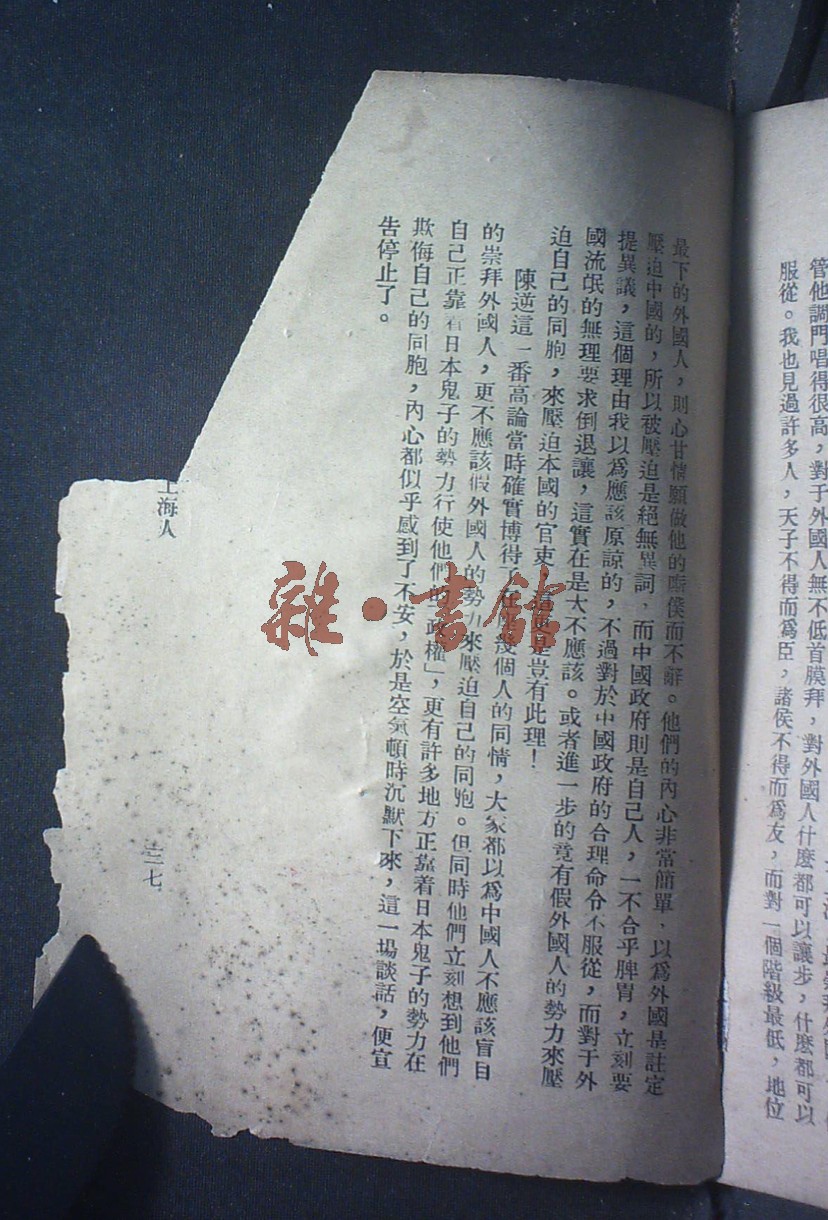 管他調門唱得很高，對于外國人無不低首膜拜，對外國人什麼都可以讓步，什麼都可以
服從。我也見過許多人，天子不得而爲臣，諸侯不得而爲友，而對一個階級最低，地位
最下的外國人，則心甘情願做他的廝僕而不辭。他們的內心非常簡單，以爲外國是註定
壓迫中國的，所以被壓迫是絕無異詞，而中國政府則是自己人，一不合乎脾胃，立刻要
提異議，這個理由我以爲應該原諒的，不過對於中國政府的合理命令不服從，而對于外
國流氓的無理要求倒退讓，這實在是大不應該。或者進一步的竟有假外國人的勢力來壓
迫自己的同胞，來壓迫本國的官吏，是豈有此理！
陳逆這一番高論當時確實博得了在座幾個人的同情，大家都以爲中國人不應該盲目
的崇拜外國人，更不應該假外國人的勢力來壓迫自己的同胞。但同時他們立刻想到他們
自己正靠着日本鬼子的勢力行使他們的「政權」，更有許多地方正靠着日本鬼子的勢力在
欺侮自己的同胞，內心都似乎感到了不安，於是空氣頓時沉默下來，這一場談話，便宣
告停止了。
上海人
三七
雜·書館